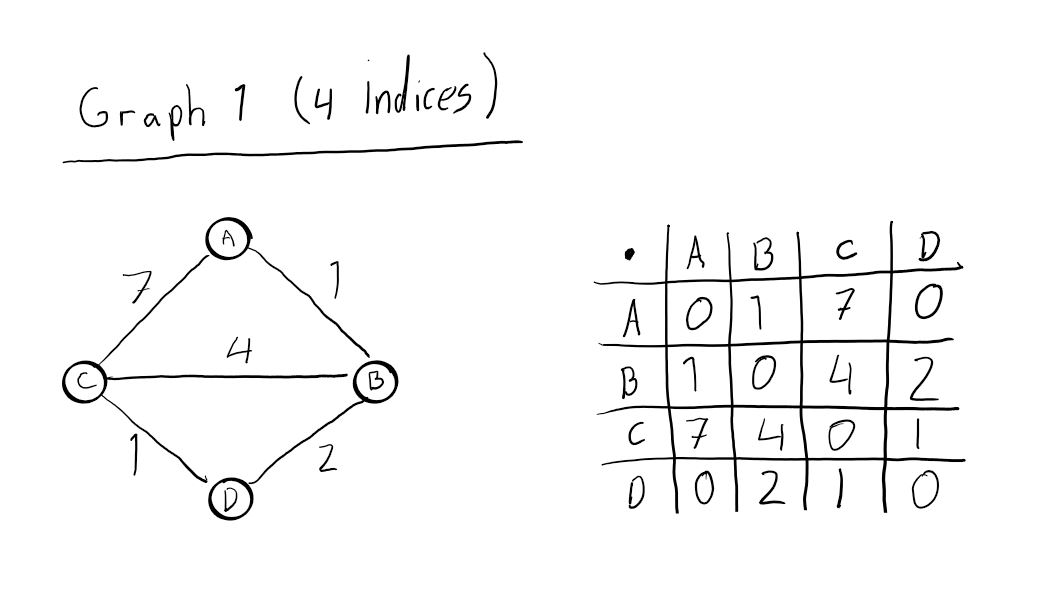 Graph 1 (4 indices)
A
7 1
4
C B
1 2
D
• A B C D
A 0 1 7 0
B 1 0 4 2
C 7 4 0 1
D 0 2 1 0